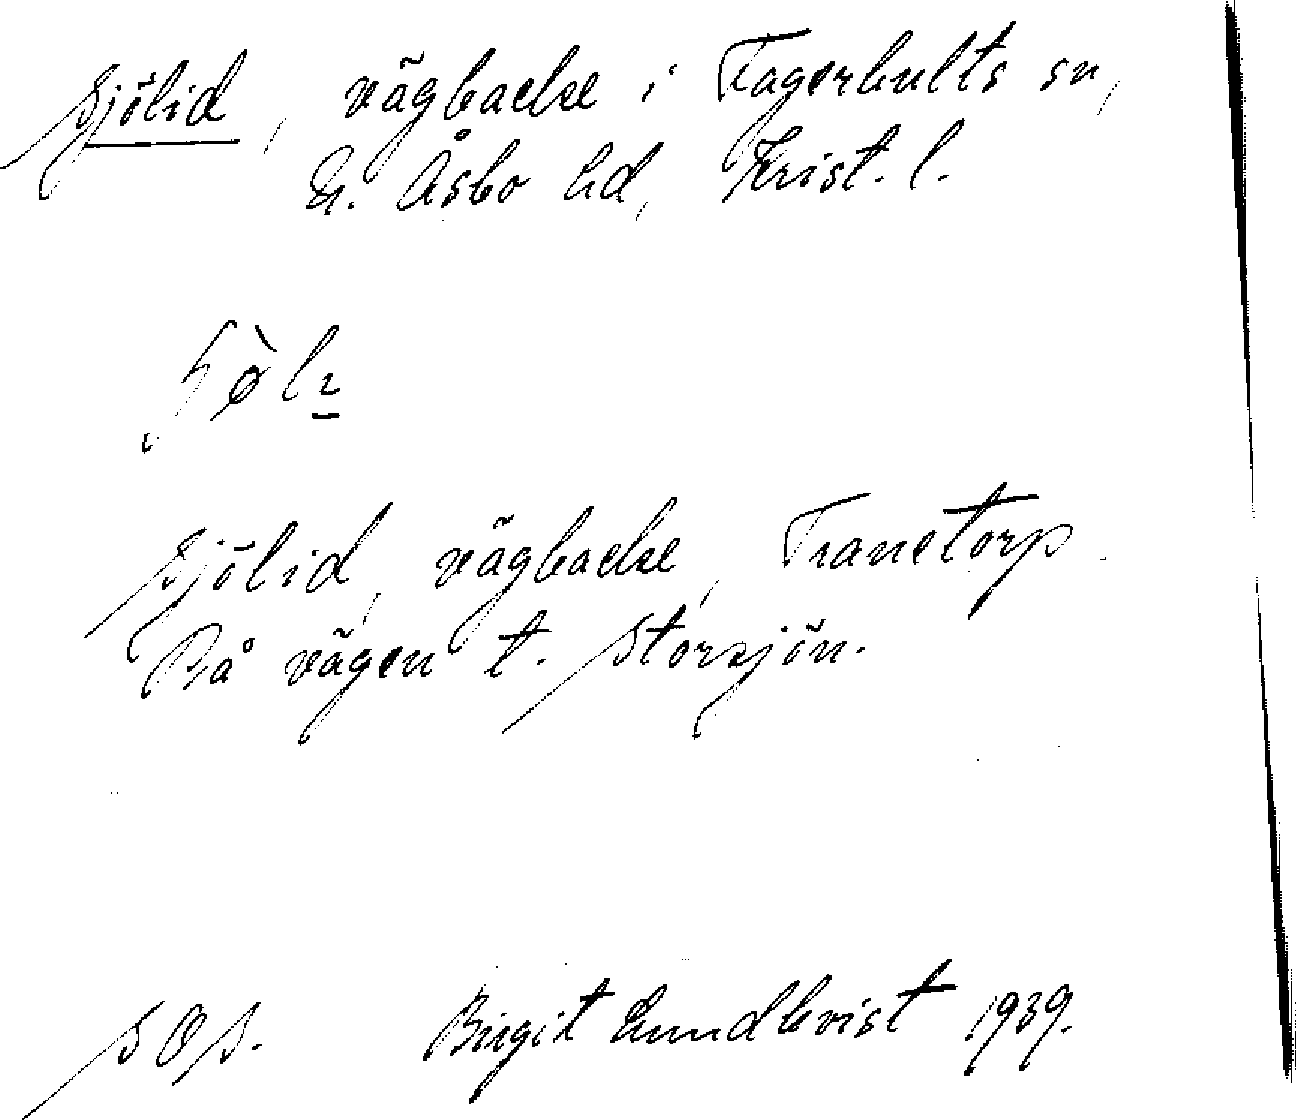 Sjölid, vägbacke i Fagerhults sn,
N. Åsbo hd, Krist. l.
Sjölid, vägbacke, Tranetorp.
På vägen t. Storsjön.
SOS. Birgit Lundkvist 1939.